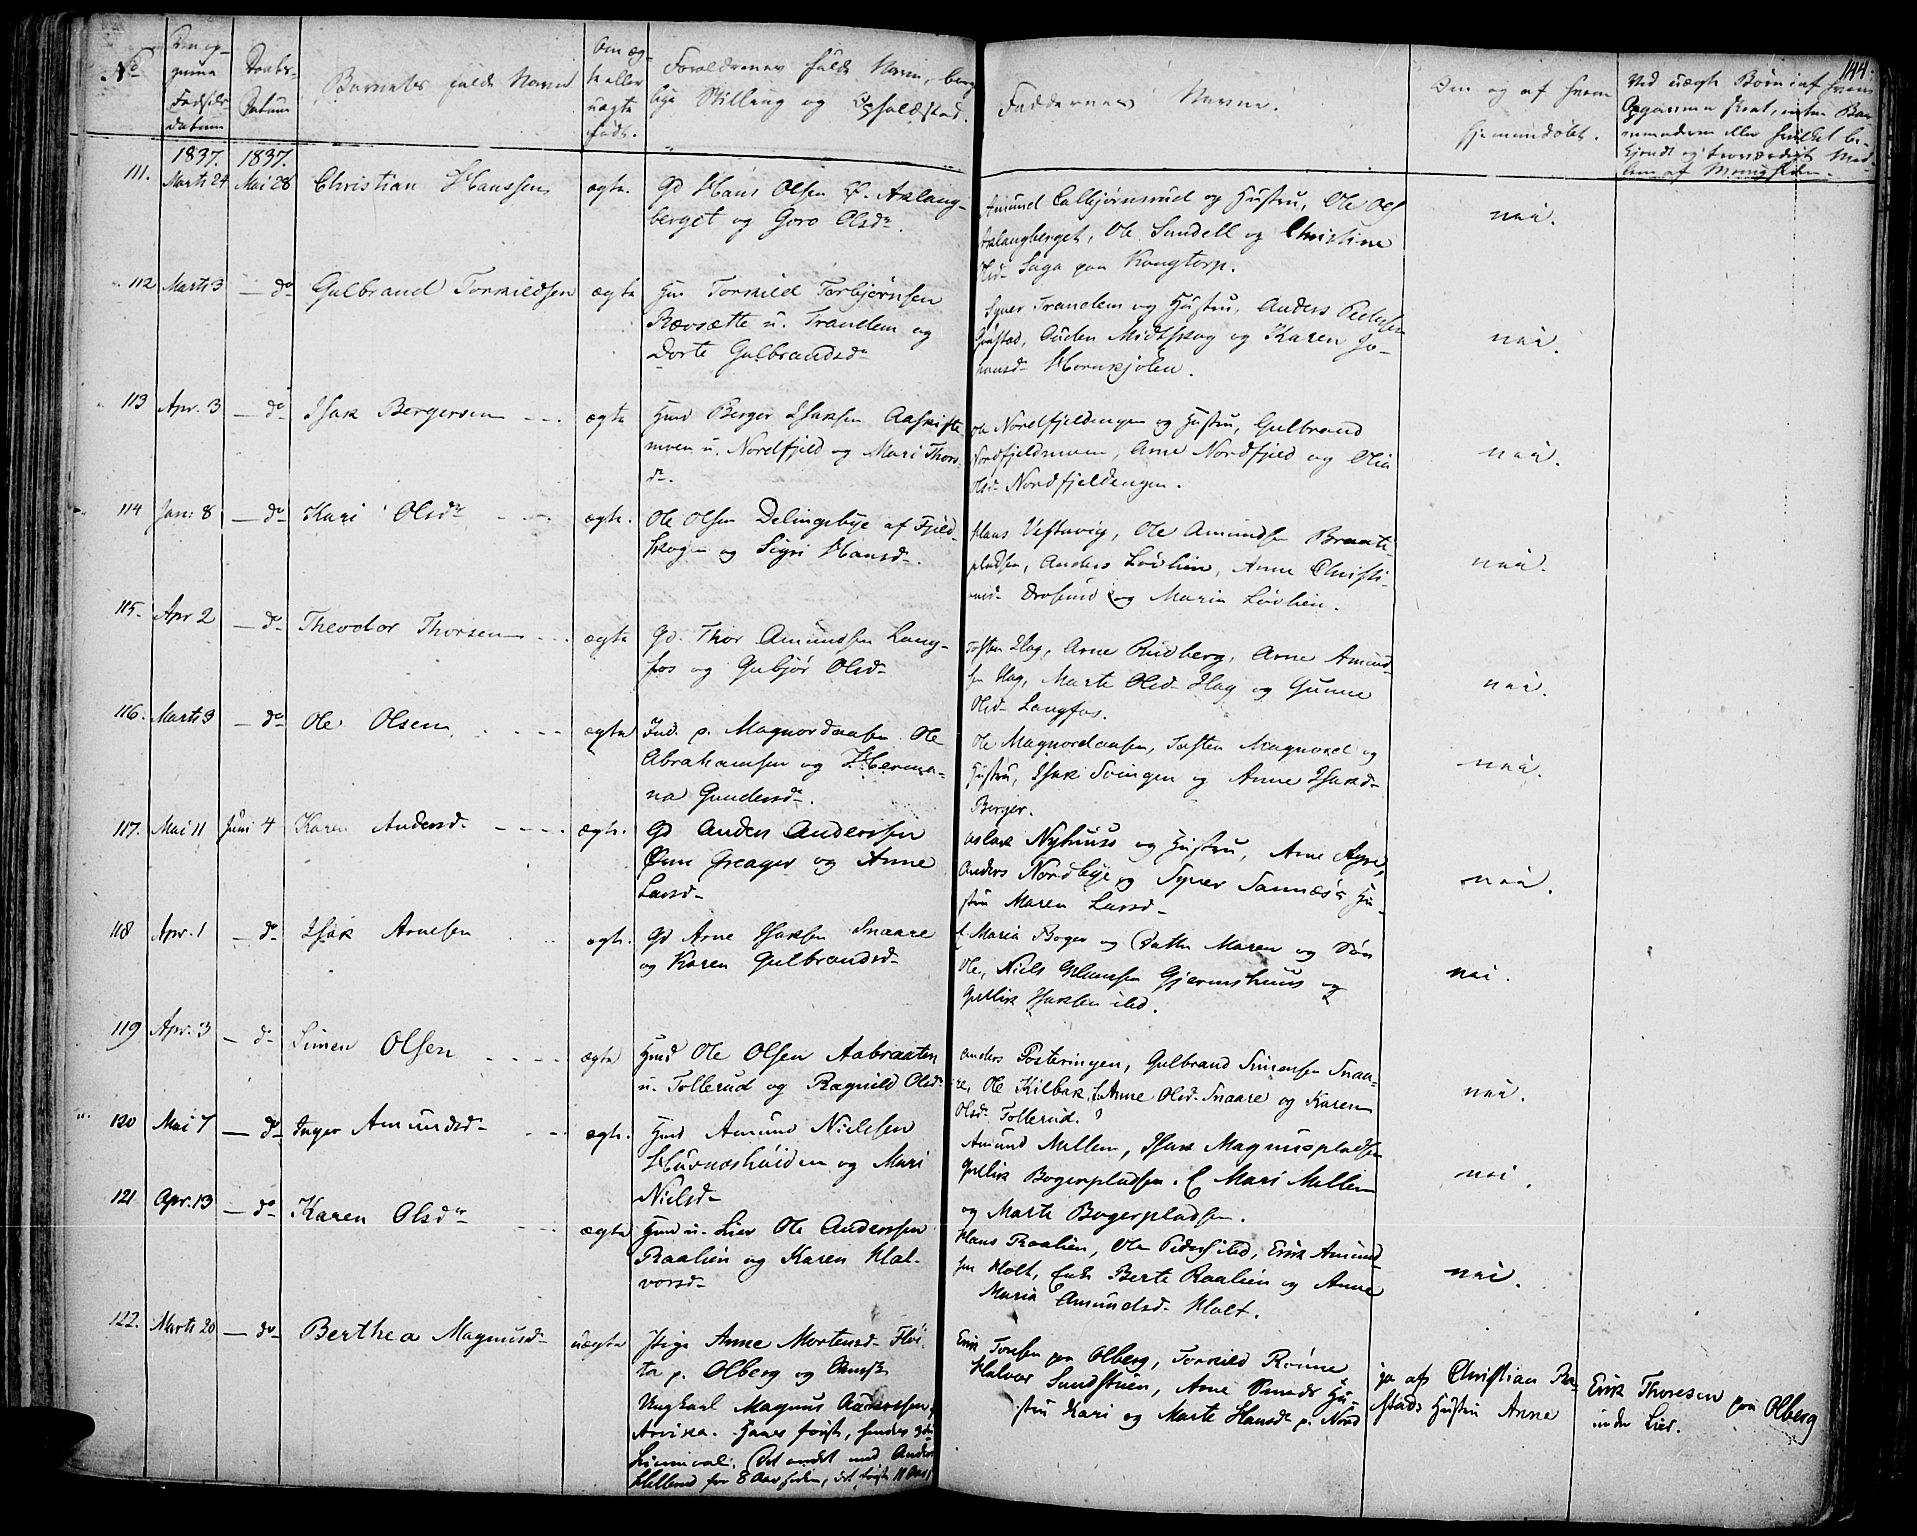 144.
No
Den op-
givne
Fødsels
datum
Daabs-
Datum
Barnets fulde Navn
Om æg-
te eller
uægte
født.
Forældrenes fulde Navn, borg
lige Stilling og Opholdsted.
Faddernes Navne.
Om og af hvem
hjemmedøbt.
Ved uægte Børn: af hvem
Opgaven skeet, enten Bar
nemoderen eller hvilket be-
kjendt og troværdigt Med-
lem af Menigheden.
1837. 1837.
111. Marts 24 Mai 28 Christian Hanssen ægte. Gd Hans Olsen Ø. Aslaug-
berget og Goro Olsdr.
Amund Colbjørnsrud og Hustru, Ole Ols
Aslaugberget, Ole Sundell og Christine
Olsd. Saga paa Kongtorp.
nei.
112 Marts 3 — do Gulbrand Torkildsen ægte Hm Torkild Torbjørnsen
Rævsætte u. Trandem og
Dorte Gulbrandsdr
Syver Trandem og Hustru, Anders Peders
Grøstad, Auden Midtskog og Karen Jo-
hansd. Hornkjølen.
nei.
113 Apr. 3 — do Isak Bergersen ægte Hmd Berger Isaksen Aaskifte
moen u. Nordfjeld og Mari Thors
dr.
Ole Nordfjeldengen og Hustru, Gulbrand
Nordfjeldmoen, Arne Nordfjeld og Olia
Olsd. Nordfjeldengen.
nei.
114 Jan: 8 — do Kari Olsdr ægte. Ole Olsen Delingsbye af Fjeld-
skogen og Sigri Hansd.
Hans Vestavig, Ole Amundsen Braate-
pladsen, Anders Løvlien, Anne Christi-
ansd. Drosund og Maria Løvlien.
nei.
115. Apr 2 — do Theodor Thorsen ægte Gd. Thor Amundsen Lang-
fos og Gubjør Olsd.
Tosten Hag, Arne Rudberg, Arne Amund
sen Hag, Marte Olsd. Hag og Gunne
Olsd. Langfos.
nei.
116. Marts 3 — do Ole Olsen ægte Ind. p. Magnordaasen Ole
Abrahamsen og Herma-
na Gundersd.
Ole Magnordaasen, Tosten Magnord og
Hustru, Isak Svingen og Anne Isaksd.
Berger.
nei.
117. Mai 11 Juni 4 Karen Andersd. ægte. Gd Anders Anderssen
Øvre Greager og Anne
Larsd.
Aslak Nyhuus og Hustru, Arne Agre,
Anders Nordbye og Syver Sannæs's Hu-
stru Maren Larsd.
nei.
118 Apr. 1 — do Isak Arnesen ægte. Gd Arne Isaksen Snaare
og Karen Gulbrandsd.
Maria Boger og Datter Maren og Søn
Ole, Niels Hansen Gjermshuus og
Gullik Isaksen ibd.
nei.
119 Apr. 3 — do Simen Olsen ægte Hmd Ole Olsen Aabraaten
u. Tollerud og Ragnild Olsd.
Anders Posteringen, Gulbrand Simensen Snaa-
re, Ole Kilbak, Anne Olsd. Snaare og Karen
Olsd. Tollerud.
nei.
120 Mai 7 — do Inger Amundsd. ægte. Hmd Amund Nielssen
Huvnæshøiden og Mari
Nielsd.
Amund Mellem, Isak Magnuspladsen
Gullik Bogerpladsen. Mari Mellem
og Marte Bogerpladsen.
nei.
121 Apr. 13 — do Karen Olsdr ægte Hmd u. Lier Ole Anderssen
Raalien og Karen Hal-
vorsd.
Hans Raalien, Ole Peders ibd, Erik Amund
sen Holt, Enke Berte Raalien og Anne
Maria Amundsd. Holt.
nei.
122. Marts 20 — do Berthea Magnusd. uægte Pige Anne Mortensd.
p. Olberg og
Ungkarl Magnus Anderssen,
Arvika. Hans første, hendes 3die
Leiermaal. Det andet med Anders
for 8 Aar siden, det første 11 Aar
Erik Torsen paa Olberg, Torkild Rønne
Halvor Sundstuen, Arne Smeds Hu
stru Kari og Marte Hansd. p. Nord
ja af Christian Ra-
stads Hustru Anne
Erik Thoresen paa Olberg
under Lier.